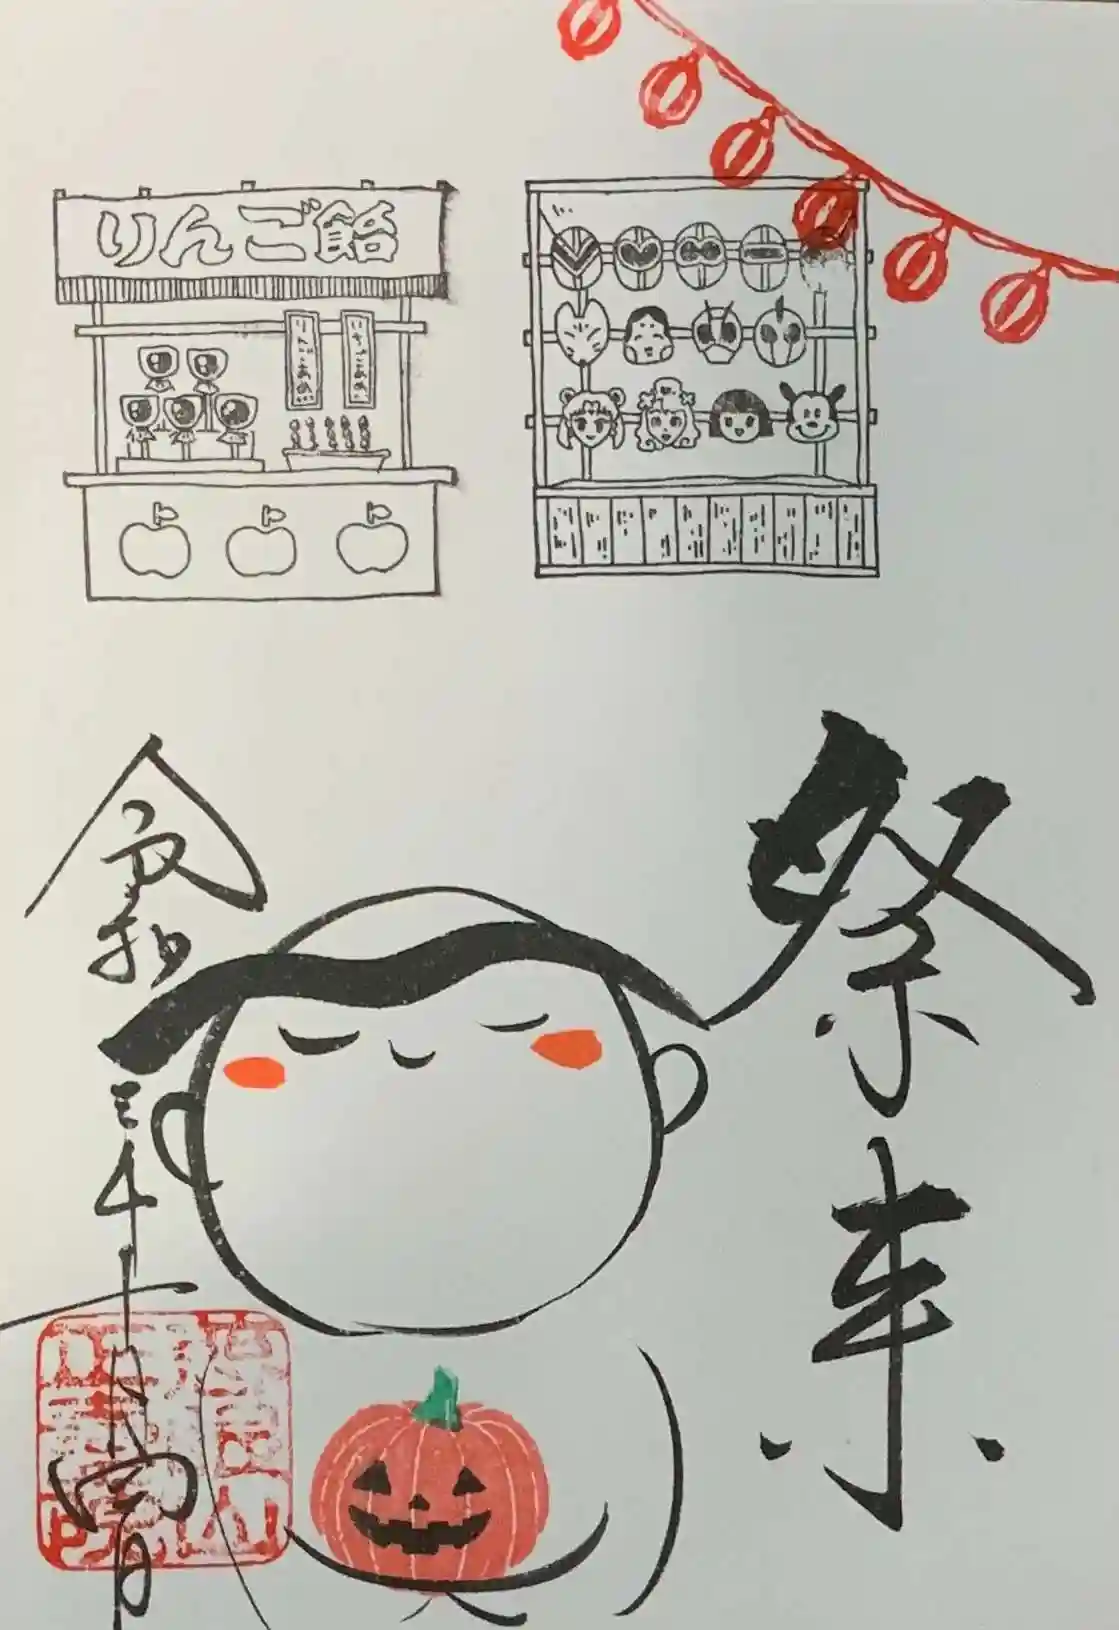 りんご飴
りんごあめ
いちごあめ
祭来
令和
三年十月